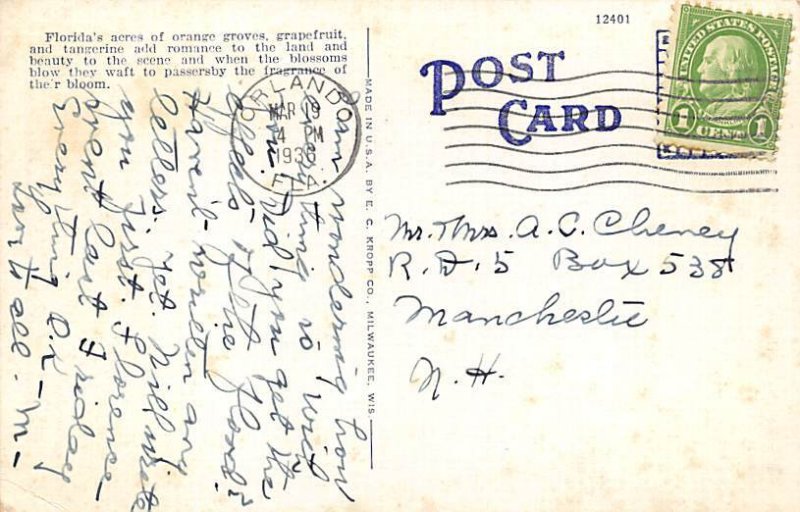 Florida's acres of orange groves, grapefruit,
and tangerine add romance to the land and
beauty to the scene and when the blossoms
blow they waft to passersby the fragrance of
the'r bloom.
12401
POST
CARD
UNITED STATES POSTAGE
FRANKLIN
1 CENT 1
ORLANDO
MAR 19
4 PM
193
FLA.
MADE IN U.S.A. BY E. C. KROPP CO., MILWAUKEE, WIS.
Mr. & Mrs. A. C. Cheney
R. D. 5 Box 538
Manchester
N. H.
am wondering how
everything is with
you. Did you get the
effects of the flood?
Haven't written any
letters yet. Will write
you first. Florence
went last Friday
Everything O.K. –
Luv to all. M –